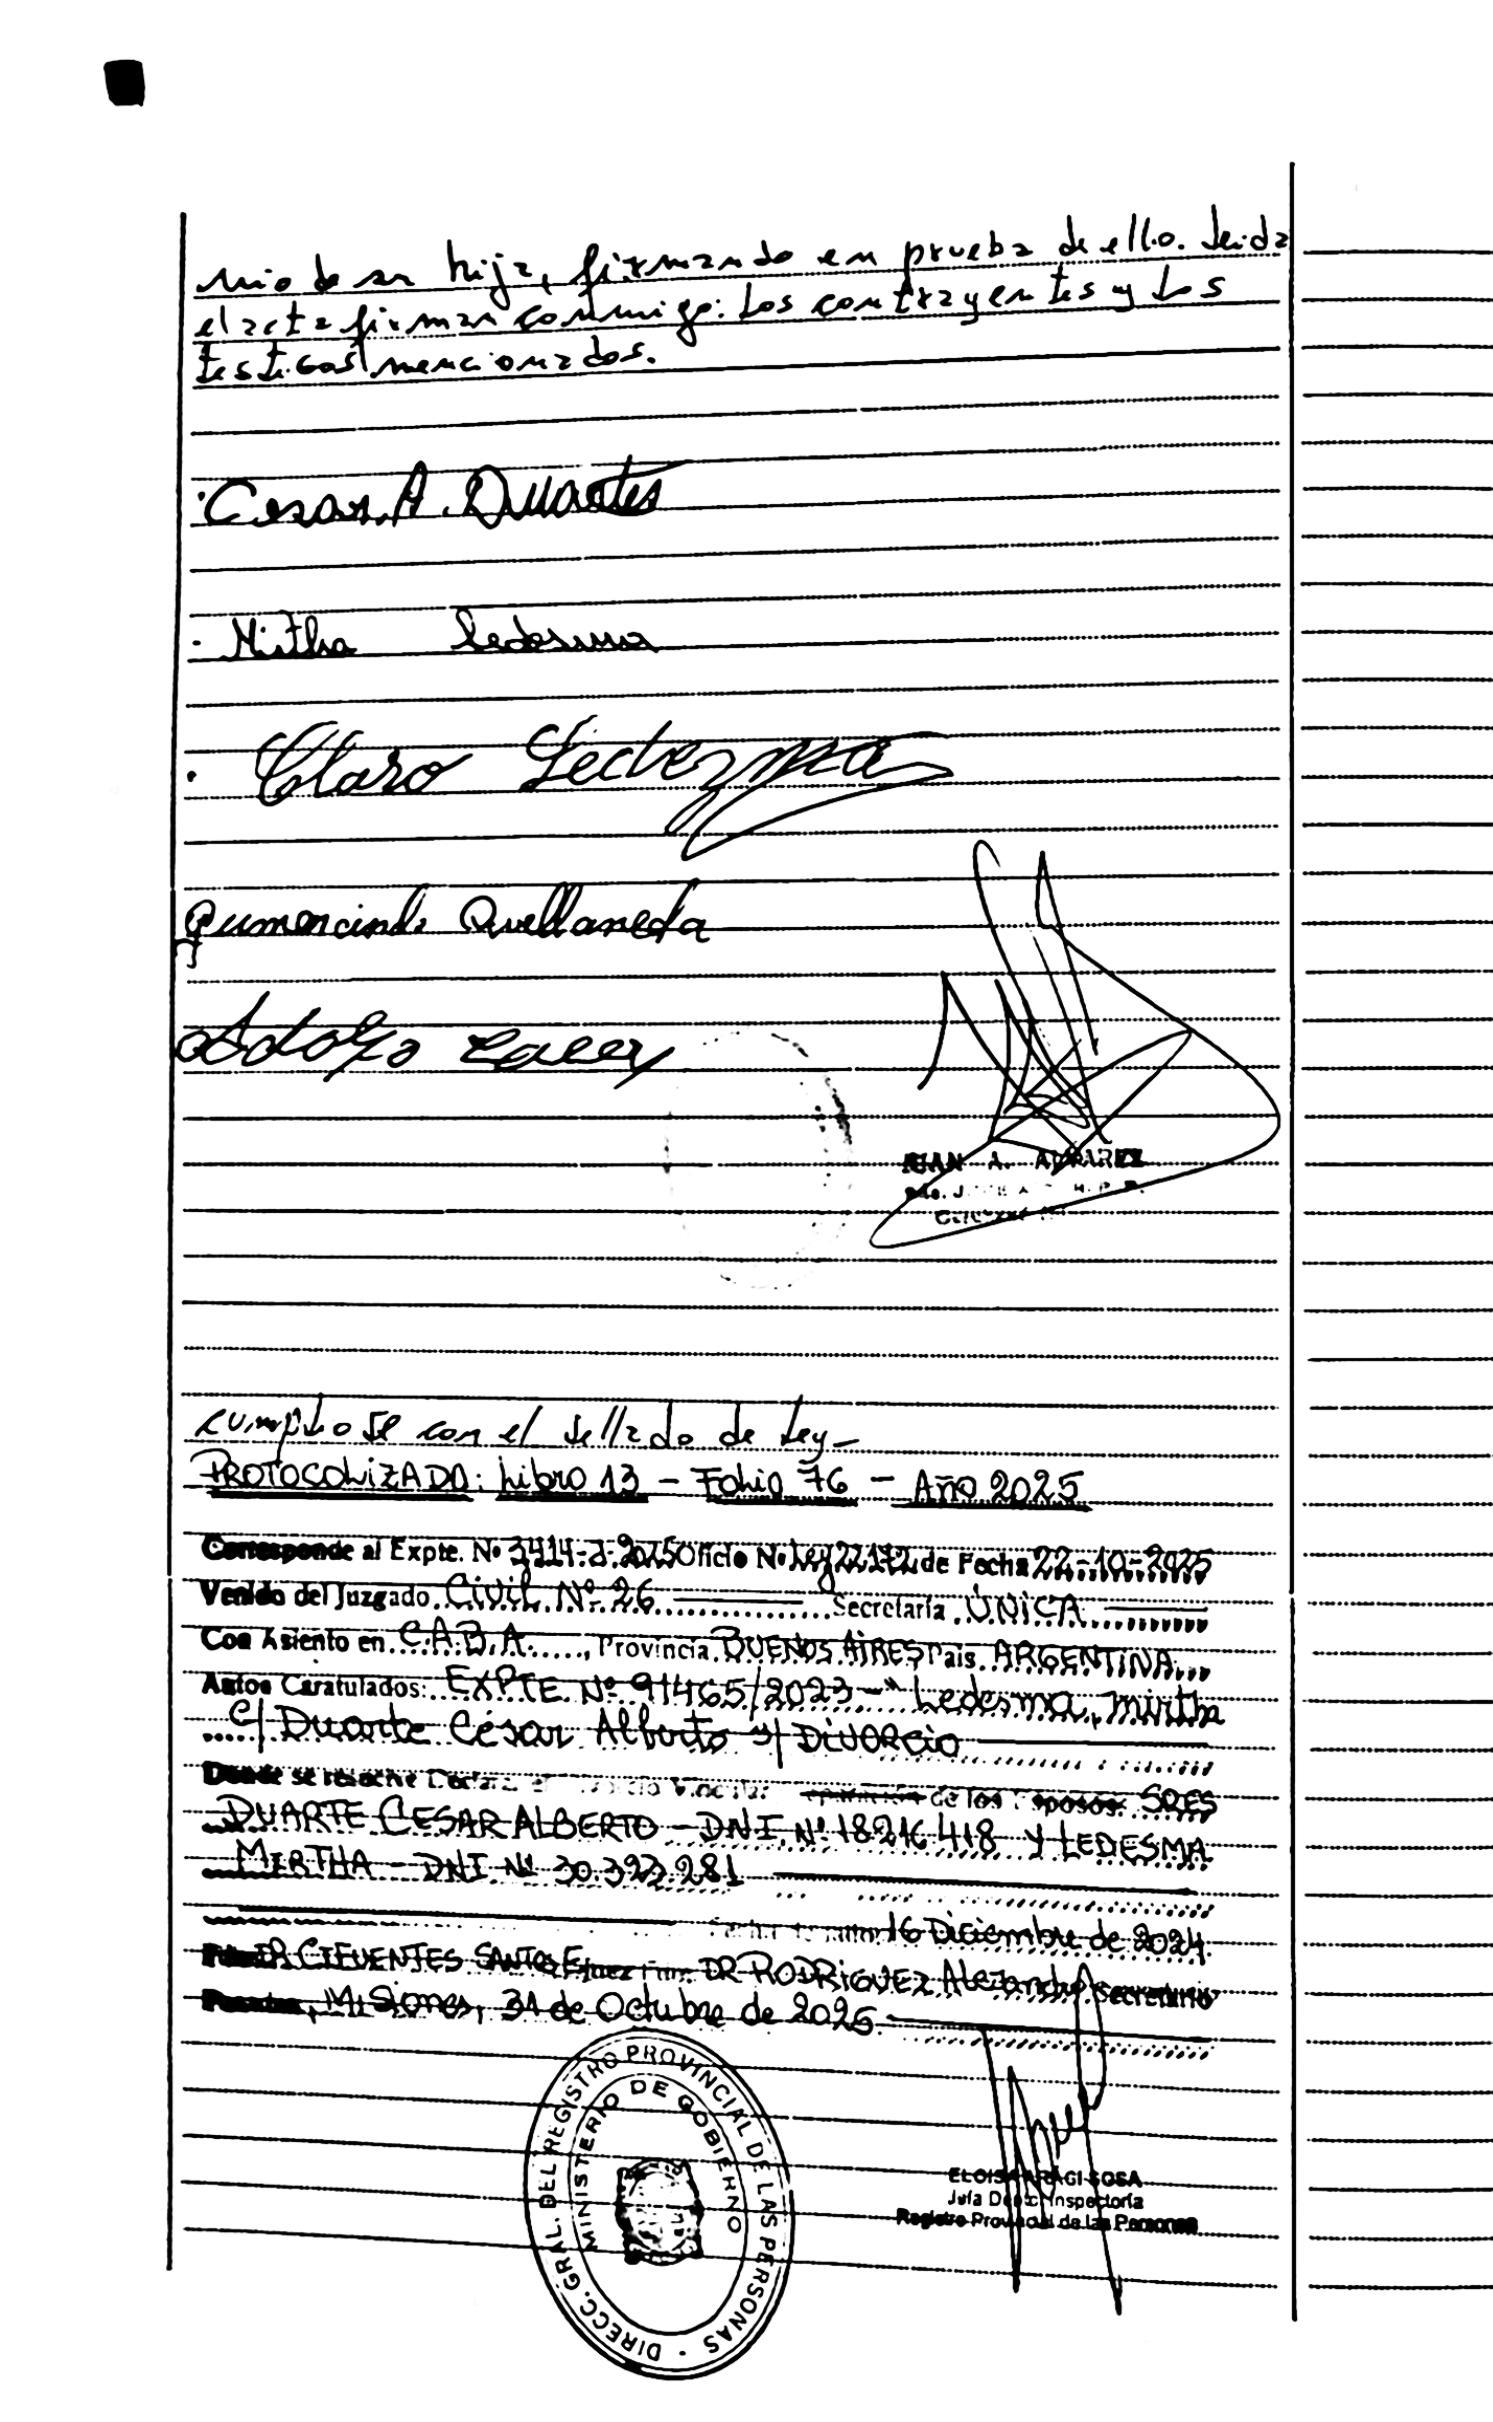 nio de su hija, firmando en prueba de ello. Leida
el acta firman conmigo: Los contrayentes y Los
testigos mencionados.
Cesar. A. Duartes
Mirtha Ledesma
Claro Ledezma
Gumercinda Avellaneda
Adolfo
JUAN A. ALVAREZ
cumplose con el sellado de Ley-
PROTOCOLIZADA: Libro 13 - Folio 76 - Año 2025
Corresponde al Expte. Nº 3414-d-2025 Oficio Nº Ley 22172 de Fecha 22-10-2025
Venido del Juzgado Civil Nº 26 Secretaría ÚNICA
Con Asiento en C.A.B.A., Provincia BUENOS AIRES Pais ARGENTINA
Autos Caratulados: EXPTE Nº 91465/2023 - "Ledesma, mirtha
c/ Duarte César Alberto s/ DIVORCIO
Donde se resuelve Declarar el Vincular de los Esposos: SRES
DUARTE CESAR ALBERTO - DNI. Nº 18216418 Y LEDESMA
MIRTHA - DNI Nº 30.393.281
16 Diciembre de 2024
DR CIFUENTES SANTO E Juez Fdo. DR RODRIGUEZ Alejandro Secretario
Posadas, Misiones, 31 de Octubre de 2025
DIRECC. GRAL. DEL REGISTRO PROVINCIAL DE LAS PERSONAS
MINISTERIO DE GOBIERNO
ELOISA ARAGI SOSA
Jefa Depto Inspectoría
Registro Provincial de las Personas